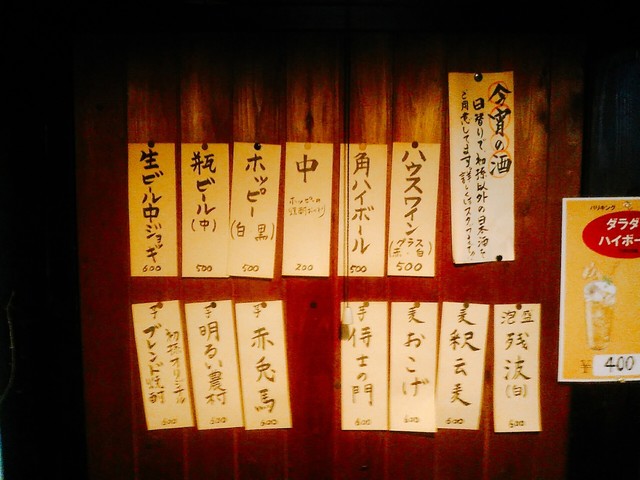 今宵の酒
日替りで、初孫以外の日本酒も
ご用意してます。詳しくはスタッフまで
ハウスワイン
(グラス
赤・白)
500
角ハイボール
500
中
ホッピーの
焼酎おかわり
200
ホッピー
(白 黒)
500
瓶ビール
(中)
500
生ビール中ジョッキ
600
泡盛
残波
(白)
500
麦
釈云麦
600
麦
おこげ
600
芋
侍士の門
600
芋
赤兎馬
600
芋
明るい農村
500
芋
初孫オリジナル
ブレンド焼酎
600
バリキング
ダラダ
ハイボー
¥400